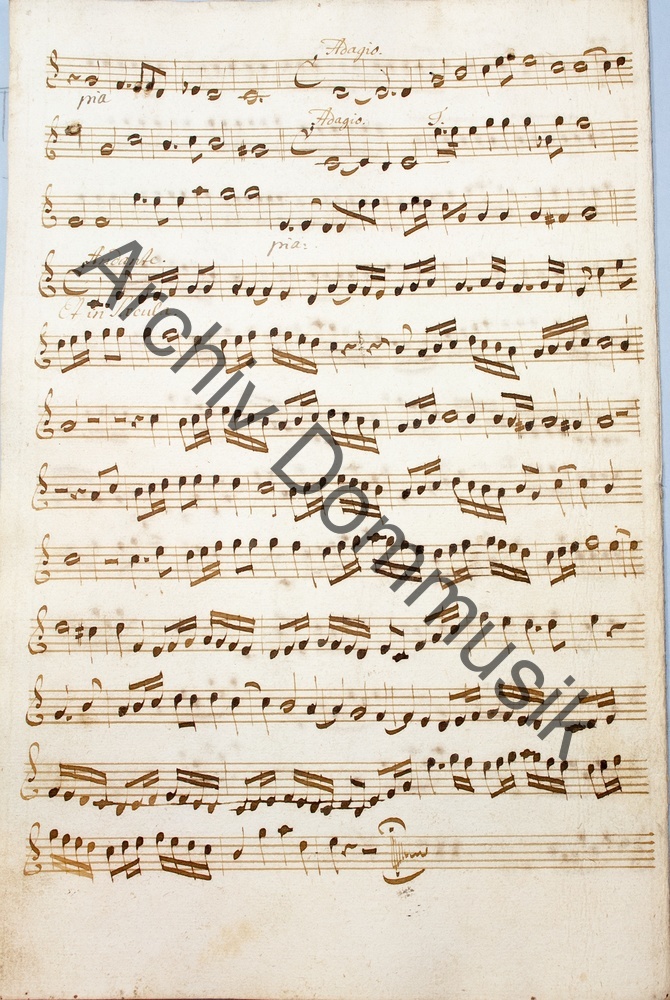 Adagio.
pia
Adagio. F.
pia:
Andante.
Et in Secula
Archiv Dommusik